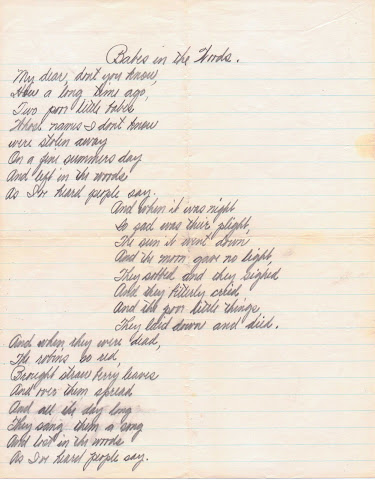 Babes in the Woods.
My dear, don't you know,
How a long time ago,
Two poor little babes
Whose names I don't know
were stolen away
On a fine summers day
And left in the woods
As I've heard people say.
And when it was night
So sad was their plight,
The sun it went down
And the moon gave no light,
They sobbed and they sighed
And they bitterly cried
And the poor little things
They laid down and died.
And when they were dead,
The robins so red,
Brought straw berry leaves
And over them spread
And all the day long
They sang them a song
And lost in the woods
As I've heard people say.